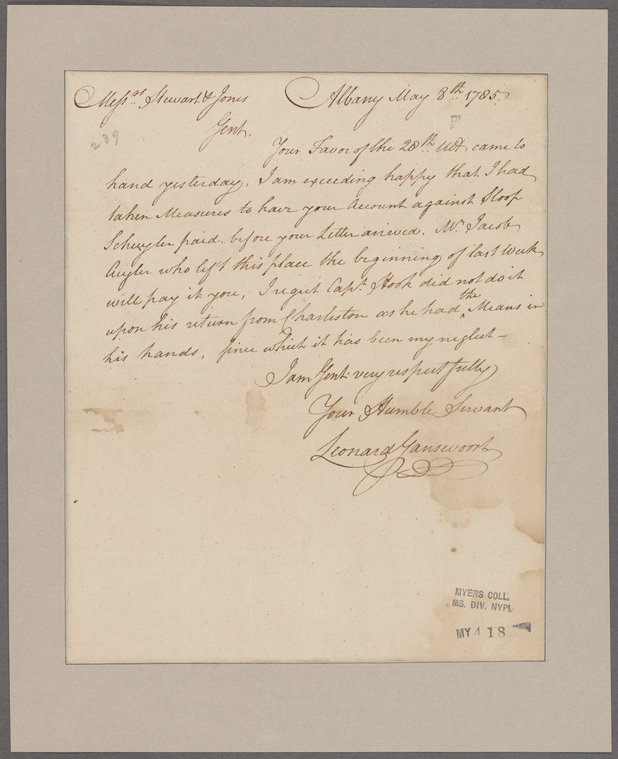 Mess.rs Stewart & Jones Albany May 8th. 1785.
239
Gent.
Your Favor of the 28th. Ult. came to
hand yesterday, I am exceeding happy that I had
taken Measures to have your Account against Sloop
Schuyler paid before your Letter arrived. Mr. Jacob
Cuyler who left this place the beginning of last Week
will pay it you, I regret Capt. Hook did not do it
upon his return from Charleston as he had the Means in
his hands, since which it has been my neglect—
I am Gent. very respectfully
Your Humble Servant
Leonard Gansevoort
MYERS COLL.
MS. DIV. NYPL
MY 4 18